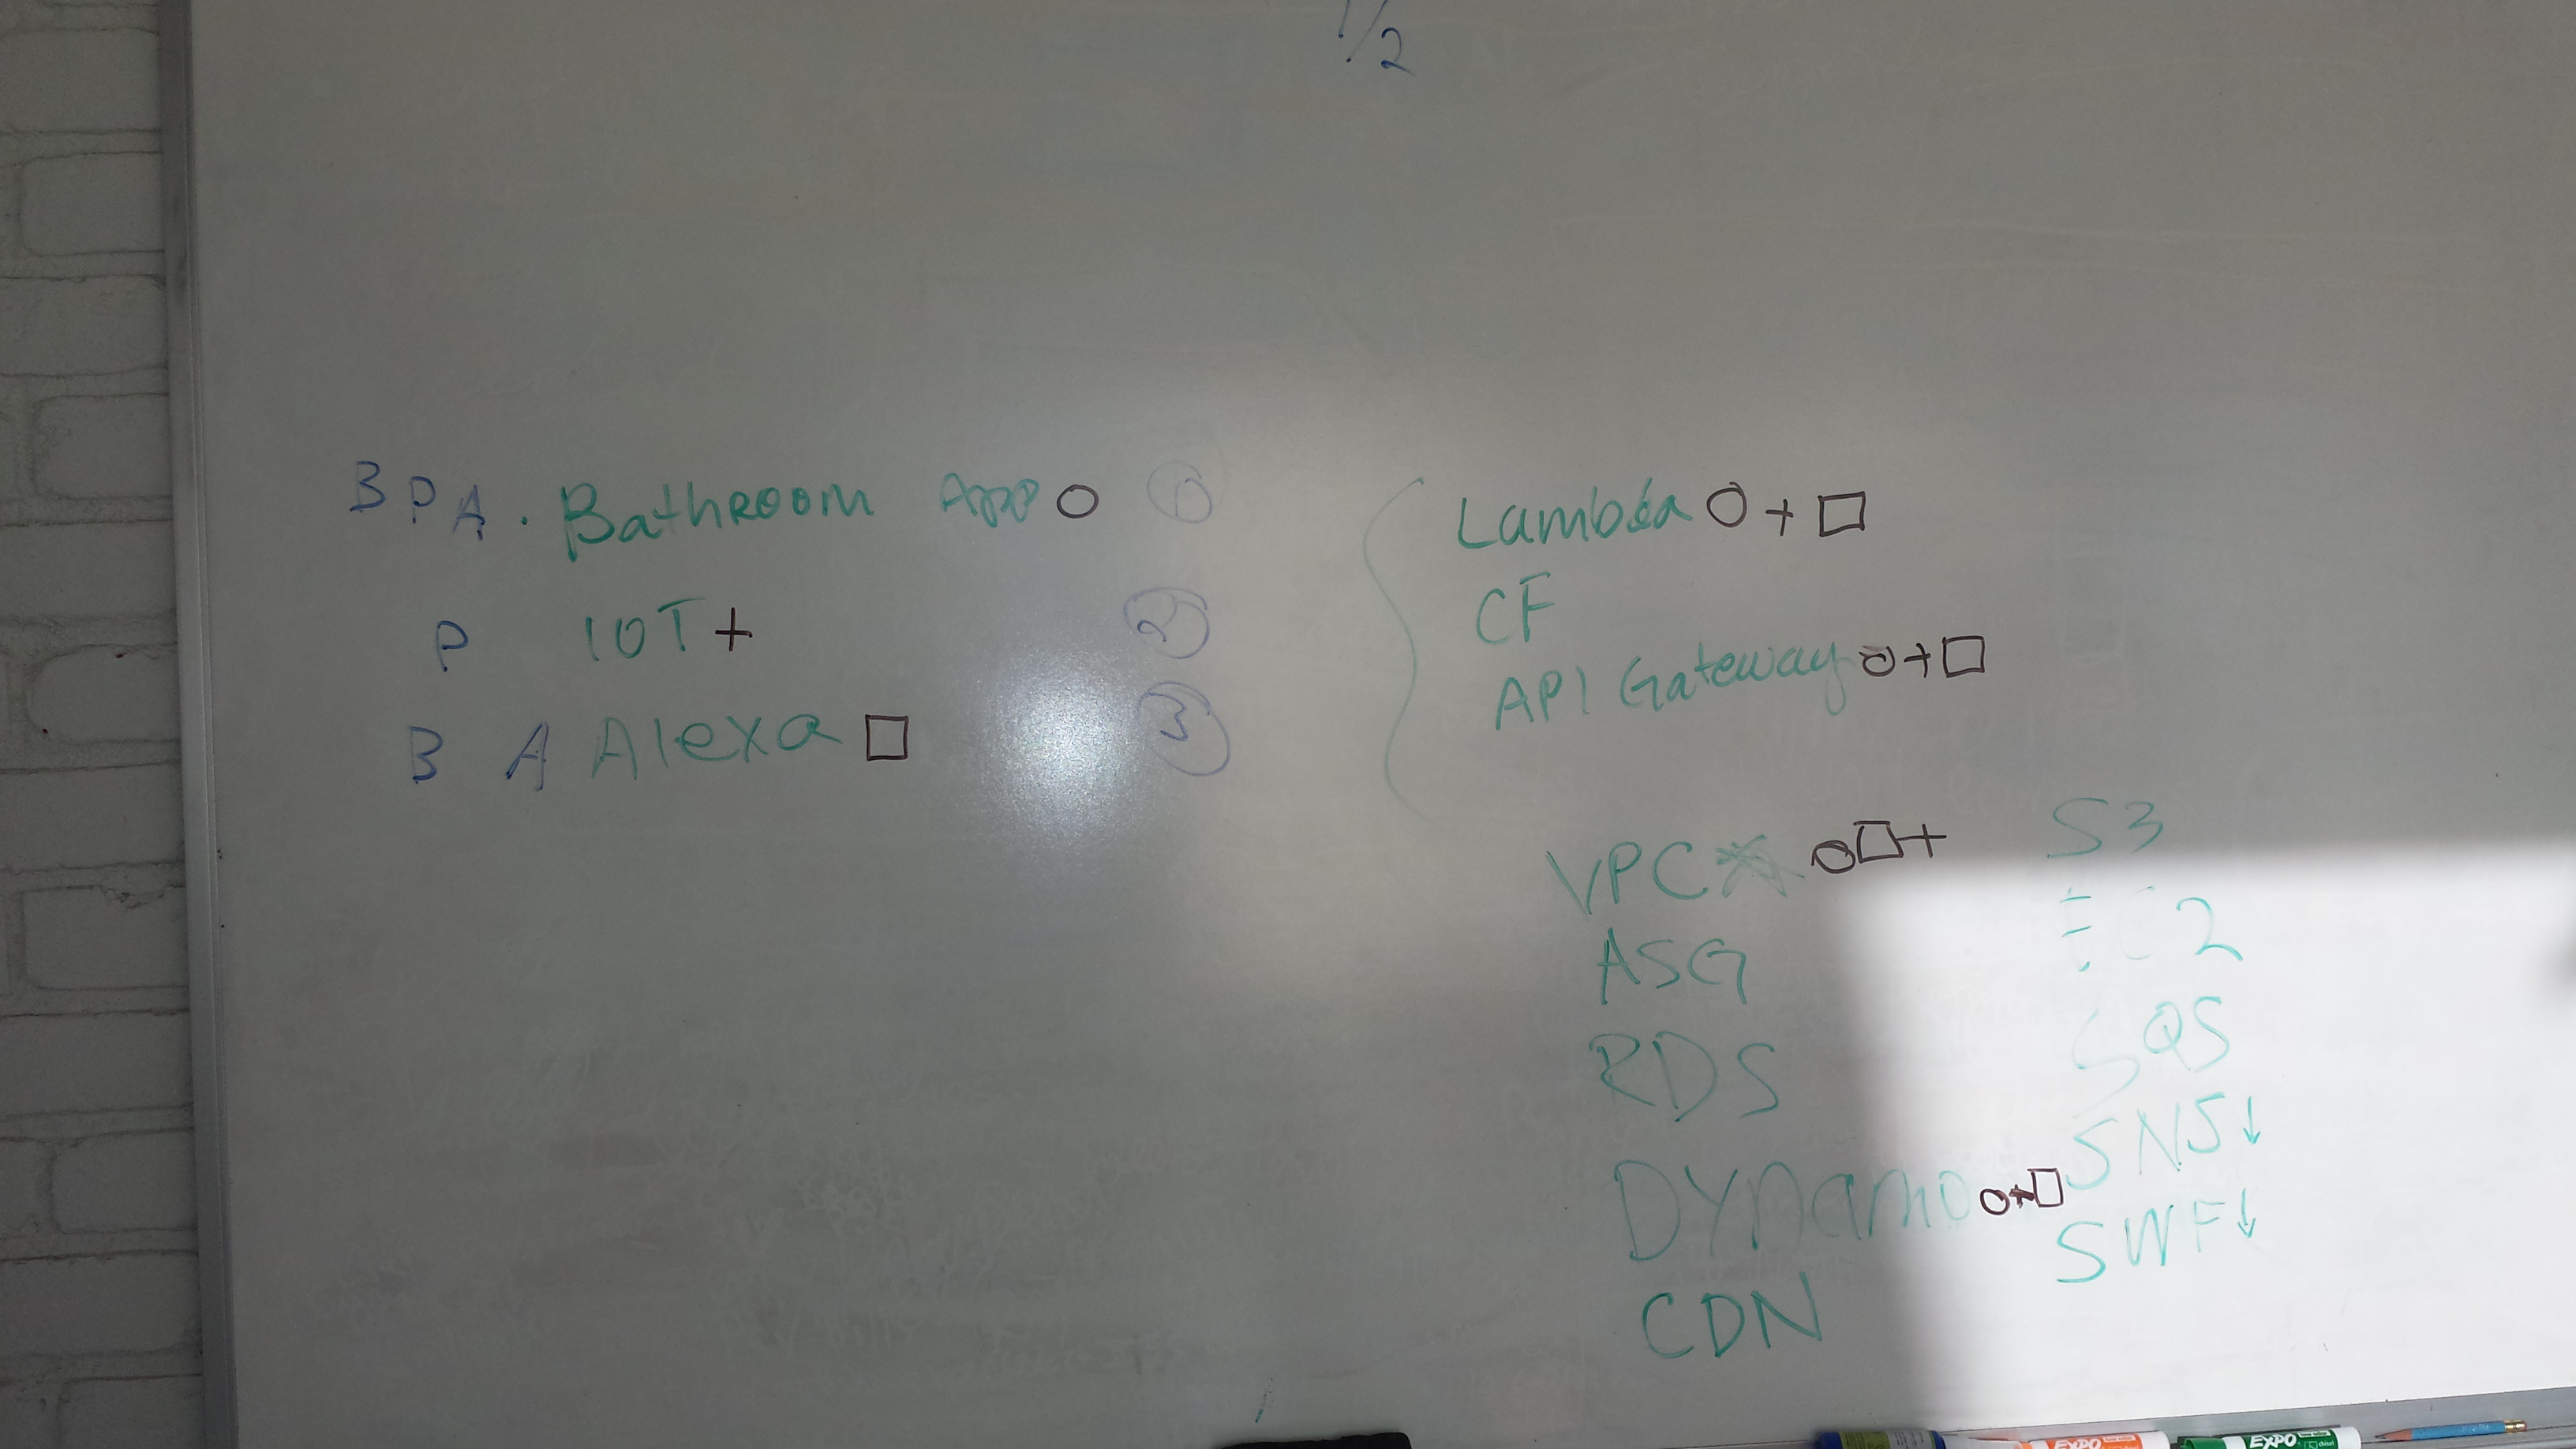 1/2
B P A . Bathroom App ○ ①
P IOT + ②
B A Alexa □ ③
Lambda ○ + □
CF
API Gateway ○ + □
VPC ○ □ +
ASG
RDS
Dynamo ○ + □
CDN
S3
EC2
SQS
SNS ↓
SWF ↓
EXPO
EXPO chisel